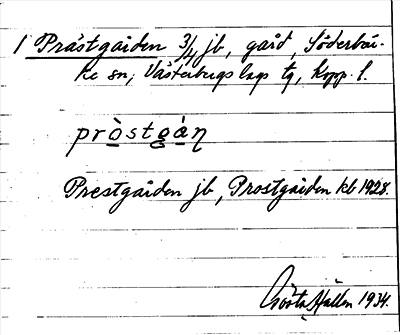 1 Prästgården 3/4 jb, gård, Söderbär-
ke sn, Västerbergslags tg, Kopp. l.
pròstgàṇ
Prestgården jb, Prostgården kb 1928.
Gösta Hallén 1934.